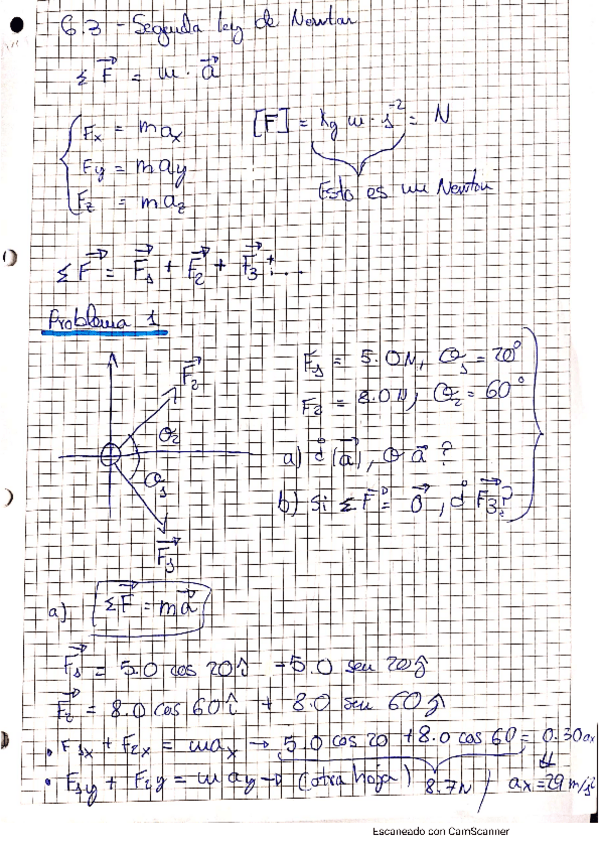 6.3 - Segunda ley de Newton
Σ F⃗ = m · a⃗
Fx = m ax
[F] = kg m · s⁻² = N
Fy = m ay
Fz = m az
Esto es un Newton
Σ F⃗ = F⃗1 + F⃗2 + F⃗3 + ...
Problema 1
F⃗2
θ2
θ1
F⃗1
F1 = 5.0N, θ1 = 20°
F2 = 8.0N, θ2 = 60°
a) ¿|a⃗|, θ a⃗ ?
b) Si Σ F⃗ = 0⃗, ¿ F⃗3?
a) Σ F⃗ = m a⃗
F⃗1 = 5.0 cos 20 î - 5.0 sen 20 ĵ
F⃗2 = 8.0 cos 60 î + 8.0 sen 60 ĵ
• F1x + F2x = m ax → 5.0 cos 20 + 8.0 cos 60 = 0.30 ax
• F1y + F2y = m ay → (otra hoja) 8.7N / ax = 29 m/s²
Escaneado con CamScanner